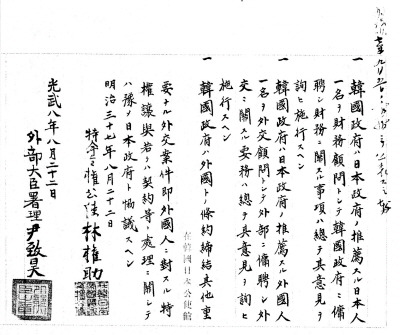 一 韓國政府ハ日本政府ノ推薦スル日本人
一名ヲ財務顧問トシテ韓國政府ニ傭
聘シ財務ニ關スル事項ハ總テ其意見ヲ
詢ヒ施行スヘシ
一 韓國政府ハ日本政府ノ推薦スル外國人
一名ヲ外交顧問トシテ外部ニ傭聘シ外
交ニ關スル要務ハ總テ其意見ヲ詢ヒ
施行スヘシ
一 韓國政府ハ外國トノ條約締結其他重
要ナル外交案件即外國人ニ對スル特
權讓與若クハ契約等ノ處理ニ關シテ
ハ豫メ日本政府ト協議スヘシ
明治三十七年八月二十二日
特命全權公使 林權助
光武八年八月二十二日
外部大臣署理 尹致昊
在韓國日本公使館